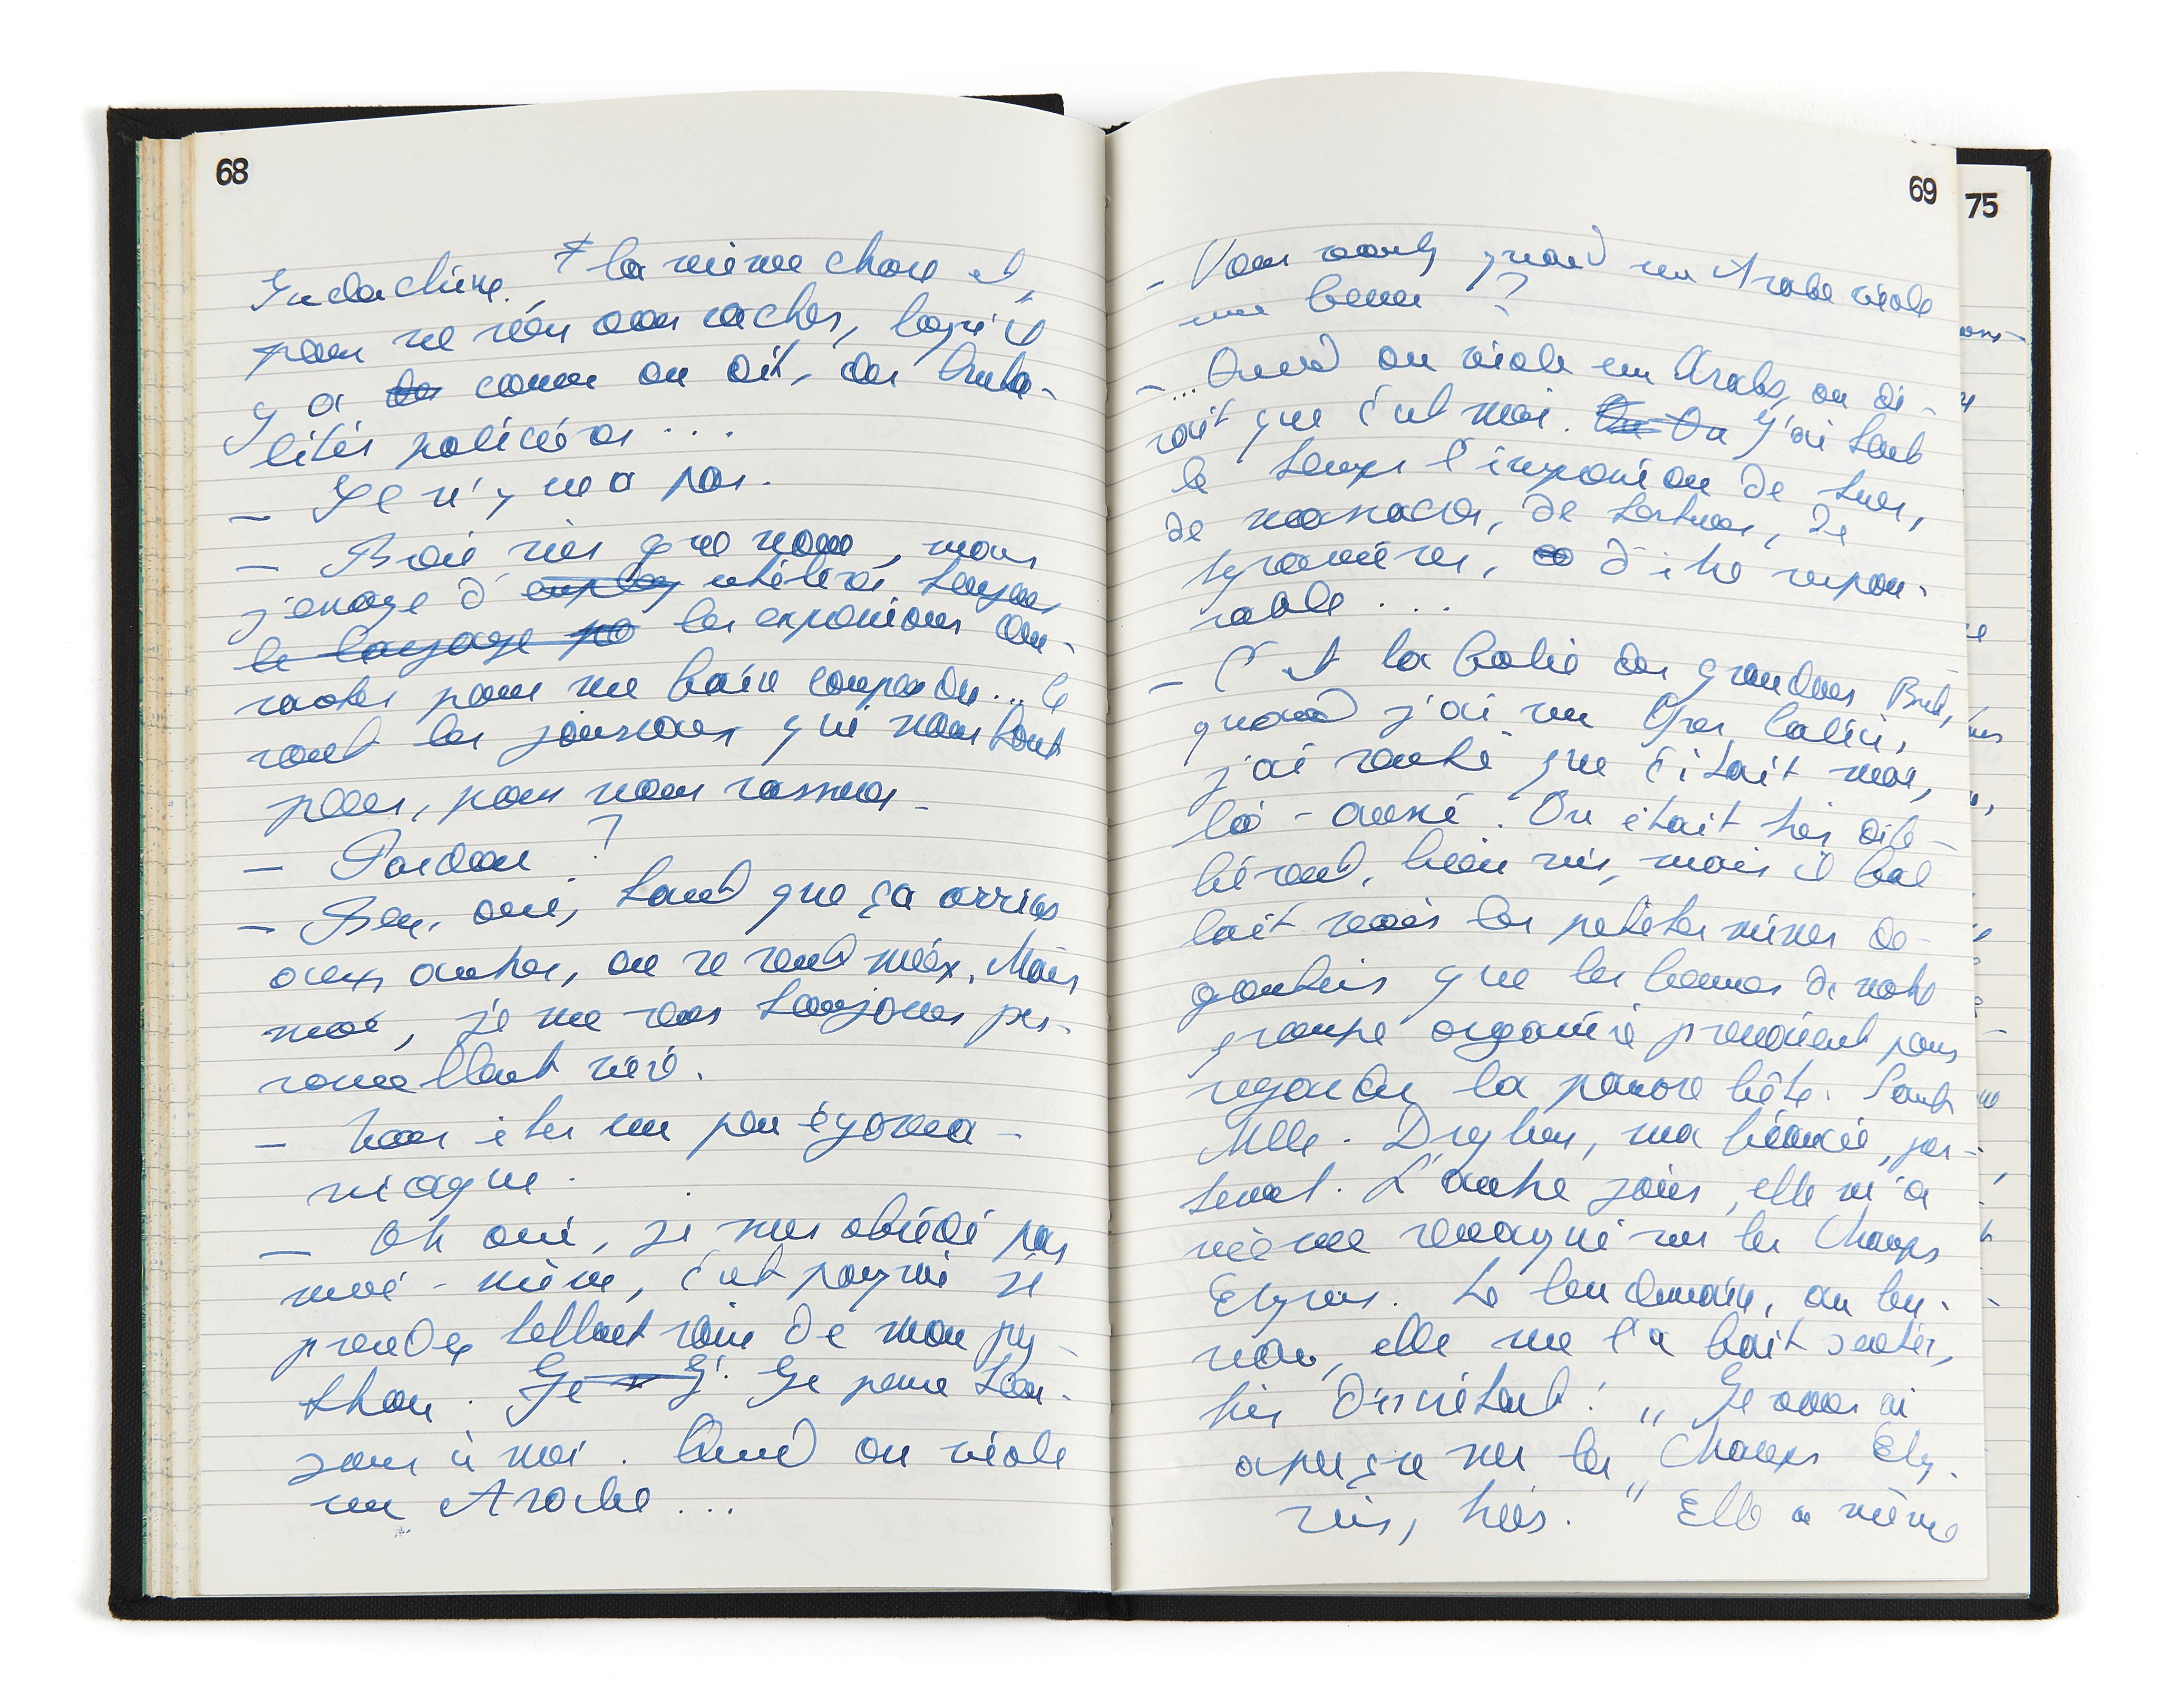 68
Indochine. ≠ la même chose et,
pour ne rien vous cacher, lorsqu'il
y a des comme on dit, des bruta-
lités policières ...
— Il n'y en a pas.
— Bois rien que nous, mais
j'essaye d' employ utiliser toujours
le langage po les expressions con-
sacrées pour me faire comprendre... Ce
sont les journaux qui nous font
peur, pour nous rassurer.
— Pardon ?
— Ben, oui, tant que ça arrive
aux autres, on se sent mieux. Mais
moi, je me sens toujours per-
sonnellement visé.
— Vous êtes un peu égoma-
niaque.
— Oh oui, je suis obsédé par
moi-même, c'est pourquoi je
prends tellement soin de mon py-
thon. Je J' Je pense tou-
jours à moi. Quand on viole
un Arabe...
69
— Vous voulez quand un Arabe viole
une femme ?
— ... Quand on viole un Arabe, on di-
rait que c'est moi. On On J'ai tout
le temps l'impression de tuer,
de massacrer, de torturer, de
tyranniser, d'être respon-
sable ...
— C'est la folie des grandeurs
Bref,
quand j'ai vu Gros Câlin,
j'ai senti que c'était moi,
là-aussi. On était très diffé-
férent, bien sûr, mais il fal
lait voir les petites mines dé-
goûtées que les femmes de notre
groupe organisé prenaient pour
regarder la pauvre bête. Sauf
Mlle. Dreyfus, ma fiancée, por-
tant. L'autre jour, elle m'a
même remarqué sur les Champs
Elysées. Le lendemain, au bu-
reau, elle me l'a fait sentir,
très discrètement : " Je vous ai
aperçu sur les Champs Ely-
sées, hier. " Elle a même
75